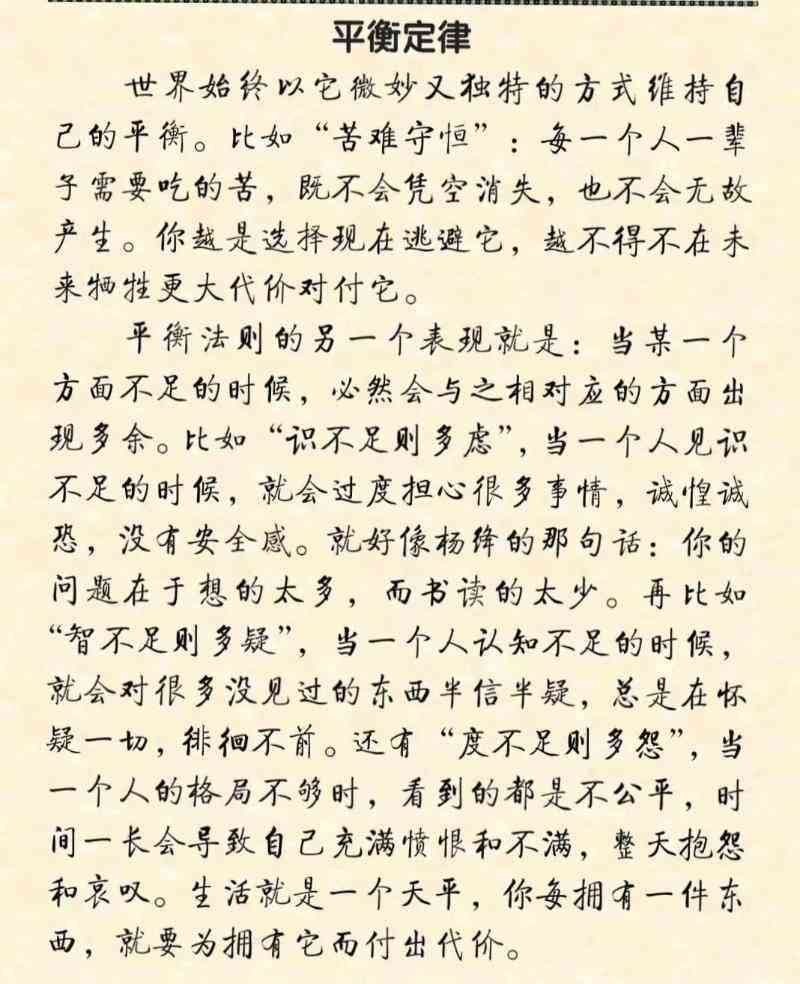 平衡定律
世界始终以它微妙又独特的方式维持自
己的平衡。比如“苦难守恒”：每一个人一辈
子需要吃的苦，既不会凭空消失，也不会无故
产生。你越是选择现在逃避它，越不得不在未
来牺牲更大代价对付它。
平衡法则的另一个表现就是：当某一个
方面不足的时候，必然会与之相对应的方面出
现多余。比如“识不足则多虑”，当一个人见识
不足的时候，就会过度担心很多事情，诚惶诚
恐，没有安全感。就好像杨绛的那句话：你的
问题在于想的太多，而书读的太少。再比如
“智不足则多疑”，当一个人认知不足的时候，
就会对很多没见过的东西半信半疑，总是在怀
疑一切，徘徊不前。还有“度不足则多怨”，当
一个人的格局不够时，看到的都是不公平，时
间一长会导致自己充满愤恨和不满，整天抱怨
和哀叹。生活就是一个天平，你每拥有一件东
西，就要为拥有它而付出代价。